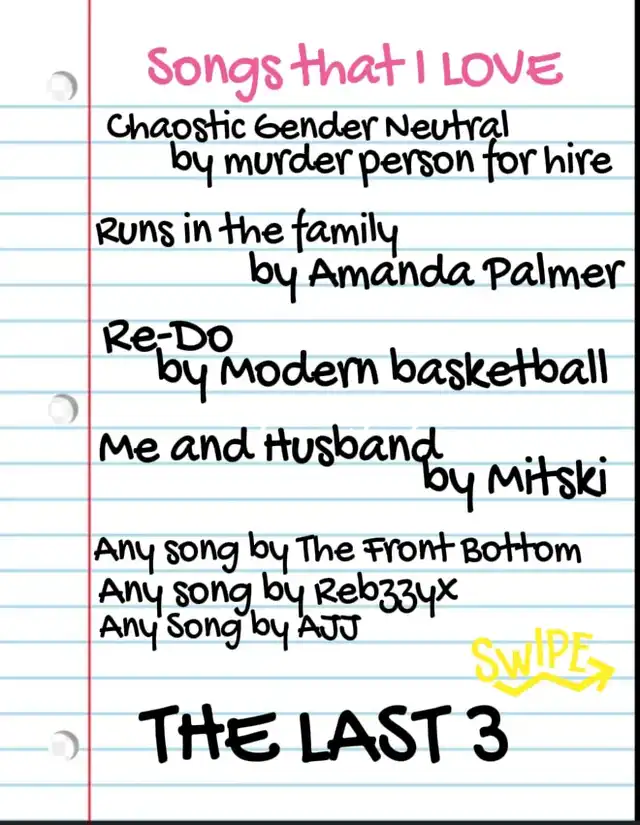 Songs that I LOVE
Chaostic Gender Neutral
by murder person for hire
Runs in the family
by Amanda Palmer
Re-Do
by Modern basketball
Me and Husband
by Mitski
Any song by The Front Bottom
Any song by Reb33yx
Any Song by AJJ
SWIPE
THE LAST 3